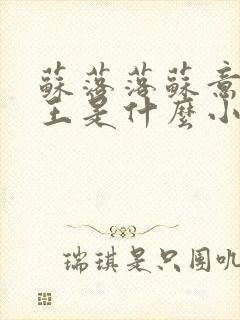 蘇落落蘇意
主是什麼小
瑞琪是只圆叽